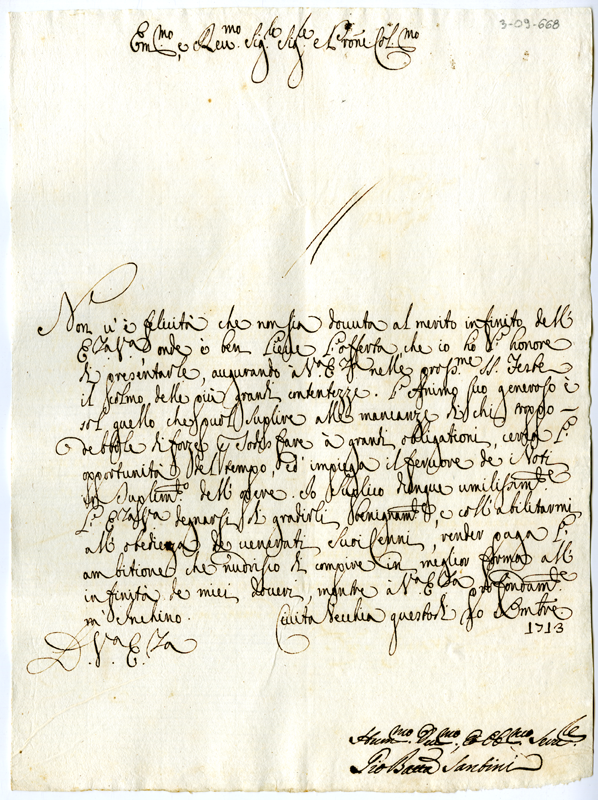 3-09-668
Em.mo, e Reu.mo Sig.re Sig.re e P.rone Col.mo
Non u' è felicità che non sia douuta al merito infinito dell'
E.za V.a onde è ben lieue l'offerta che io hò l'honore
di presentarle, augurando à V.a E.za nelle pross.me S.te Feste
il colmo delle più grandi contentezze. L'Animo suo generoso è
sol quello che puol suplire alle mancanze di chi troppo
debbole di forze
à grandi obligationi, cerca l'
opportunità del tempo, ed' impiega il feruore de i Voti
in suplim.to dell' opere. Io suplico dunque umilissim.te
l' E.za V.a degnarsi di gradirli benignam.te, e coll' abilitarmi
all' obedienza de uenerati suoi Cenni, render paga l'
ambitione, che nudrisco di compire in meglior forma all'
infinità de miei doueri, mentre à V.a E.za profondam.te
m' Inchino.
Ciuita Vecchia questo dì 20 Xmbre
1713
D. V.a E.za
Hum.mo Deu.mo, et Obl.mo Seru.re
Gio Batta Santini